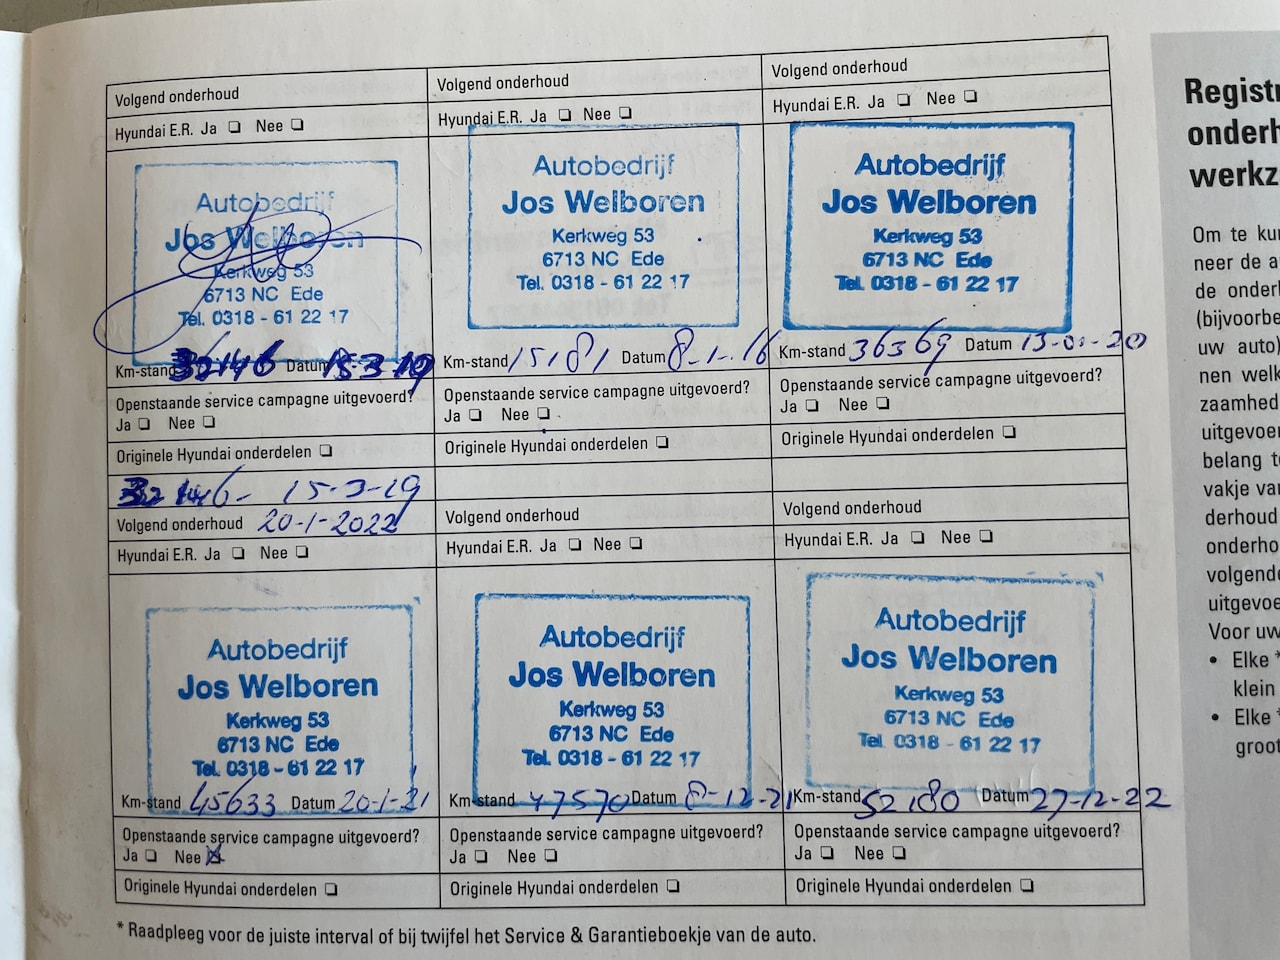 Volgend onderhoud
Hyundai E.R. Ja ❏ Nee ❏
Autobedrijf
Jos Welboren
Kerkweg 53
6713 NC Ede
Tel. 0318 - 61 22 17
Km-stand 32146 Datum 15-3-19
Openstaande service campagne uitgevoerd?
Ja ❏ Nee ❏
Originele Hyundai onderdelen ❏
32146- 15-3-19
Volgend onderhoud
Hyundai E.R. Ja ❏ Nee ❏
Autobedrijf
Jos Welboren
Kerkweg 53
6713 NC Ede
Tel. 0318 - 61 22 17
Km-stand 15181 Datum 8-1-16
Openstaande service campagne uitgevoerd?
Ja ❏ Nee ❏
Originele Hyundai onderdelen ❏
Volgend onderhoud
Hyundai E.R. Ja ❏ Nee ❏
Autobedrijf
Jos Welboren
Kerkweg 53
6713 NC Ede
Tel. 0318 - 61 22 17
Km-stand 36369 Datum 13-01-20
Openstaande service campagne uitgevoerd?
Ja ❏ Nee ❏
Originele Hyundai onderdelen ❏
Volgend onderhoud 20-1-2022
Hyundai E.R. Ja ❏ Nee ❏
Autobedrijf
Jos Welboren
Kerkweg 53
6713 NC Ede
Tel. 0318 - 61 22 17
Km-stand 45633 Datum 20-1-21
Openstaande service campagne uitgevoerd?
Ja ❏ Nee ☒
Originele Hyundai onderdelen ❏
Volgend onderhoud
Hyundai E.R. Ja ❏ Nee ❏
Autobedrijf
Jos Welboren
Kerkweg 53
6713 NC Ede
Tel. 0318 - 61 22 17
Km-stand 47570 Datum 8-12-21
Openstaande service campagne uitgevoerd?
Ja ❏ Nee ❏
Originele Hyundai onderdelen ❏
Volgend onderhoud
Hyundai E.R. Ja ❏ Nee ❏
Autobedrijf
Jos Welboren
Kerkweg 53
6713 NC Ede
Tel. 0318 - 61 22 17
Km-stand 52180 Datum 27-12-22
Openstaande service campagne uitgevoerd?
Ja ❏ Nee ❏
Originele Hyundai onderdelen ❏
* Raadpleeg voor de juiste interval of bij twijfel het Service & Garantieboekje van de auto.
Registr
onderh
werkz
Om te kun
neer de a
de onderh
(bijvoorbe
uw auto)
nen welk
zaamhed
uitgevoer
belang te
vakje van
derhoud
onderho
volgende
uitgevoe
Voor uw
• Elke *
klein
• Elke *
groot